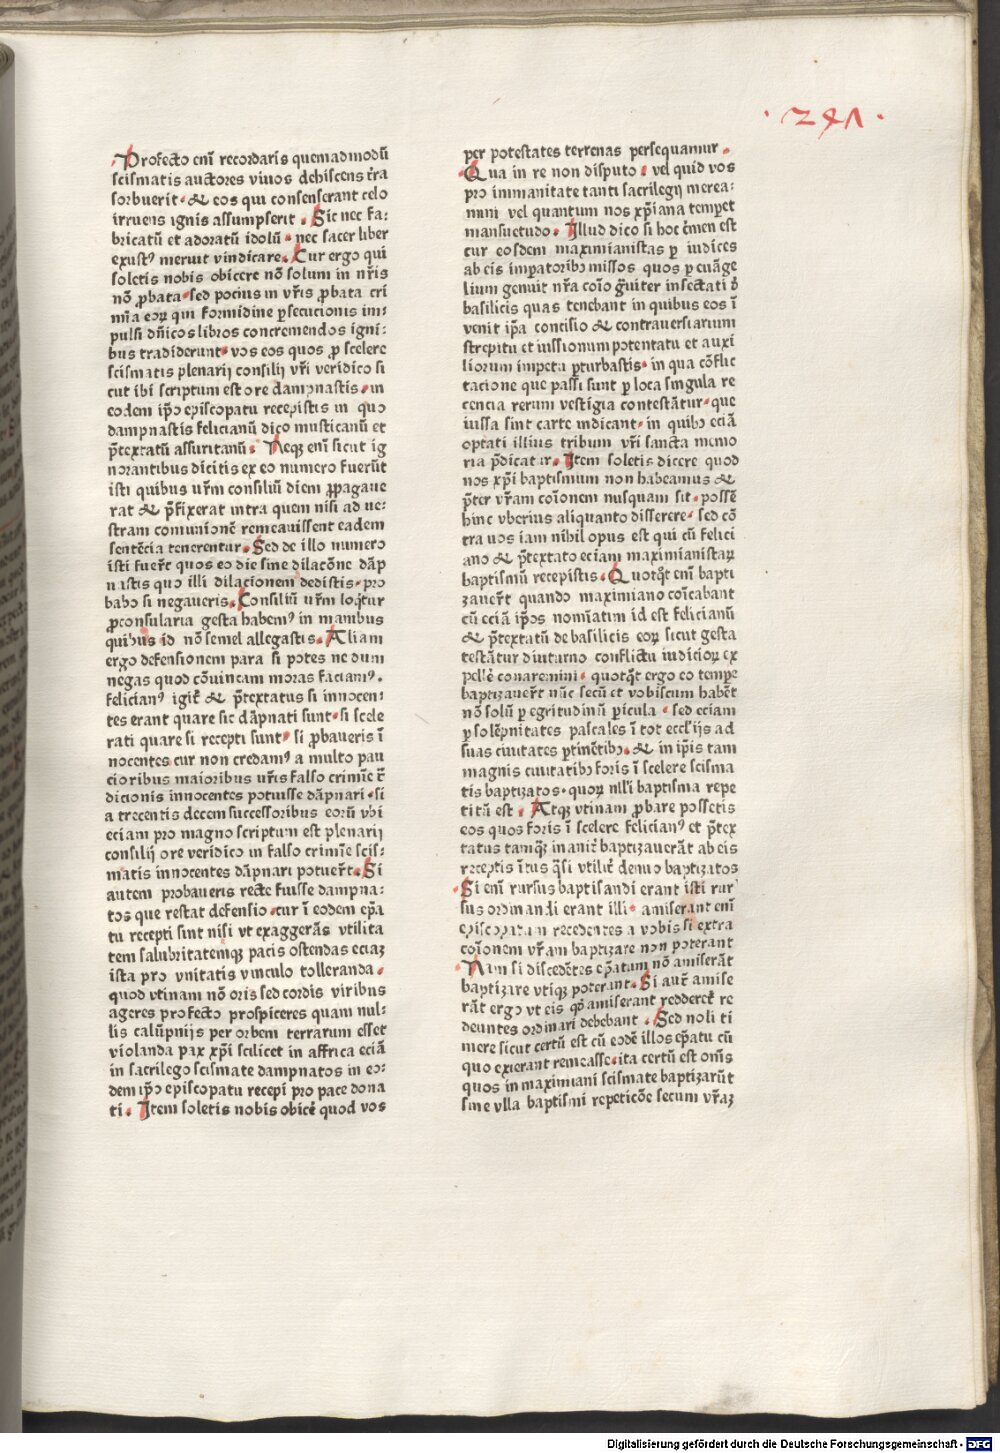 ·2𝟜1·
Profecto eni recordaris quemadmodū
scismatis auctores viuos dehiscens t̄ra
sorbuerit · & eos qui consenserant celo
irruens ignis assumpserit · Sic nec fa⸗
bricatū et adoratū idolū · nec sacer liber
exustꝰ meruit vindicare · Cur ergo qui
soletis nobis obicere nō solum in nr̄is
nō ꝓbata · sed pocius in vr̄is ꝓbata cri
mīa eoꝝ qui formidine ꝑsecucionis im⸗
pulsi dn̄icos libros concremendos igni⸗
bus tradiderunt · vos eos quos ꝓ scelere
scismatis plenarij consilij vr̄i veridico si
cut ibi scriptum est ore dampnastis · in
eodem ip̄o episcopatu recepistis in quo
dampnastis felicianū dico musticanū et
p̄textatū assuritanū · Neqꝫ enī sicut ig
norantibus dicitis ex eo numero fuerūt
isti quibus vr̄m consiliū diem ꝓpagaue
rat & p̄fixerat intra quem nisi ad ve⸗
stram comunionē remeauissent eadem
sentēcia tenerentur · Sed de illo numero
isti fuer̄t quos eo die sine dilacōne dāp
nastis quo illi dilacionem dedistis · pro
babo si negaueris · Consiliū vr̄m loq̄tur
ꝓconsularia gesta habemꝰ in manibus
quibus id nō semel allegastis · Aliam
ergo defensionem para si potes ne dum
negas quod cōuincam moras faciamꝰ ·
Felicianꝰ igit̄ & p̄textatus si innocen⸗
tes erant quare sic dāpnati sunt · si scele
rati quare si recepti sunt · si ꝓbaueris ī
nocentes cur non credamꝰ a multo pau
cioribus maioribus vr̄is falso crimīe t̄r
dicionis innocentes potuisse dāpnari · si
a trecentis decem successoribus eorū vbi
eciam pro magno scriptum est plenarij
consilij ore veridico in falso crimīe scis⸗
matis innocentes dāpnari potuer̄t · Si
autem probaueris recte fuisse dampna⸗
tos que restat defensio · cur ī eodem ep̄a
tu recepti sint nisi vt exaggerās vtilita
tem salubritatemqꝫ pacis ostendas eciaꝫ
ista pro vnitatis vinculo tolleranda ·
quod vtinam nō oris sed cordis viribus
ageres profecto prospiceres quam nul⸗
lis calūpnijs per orbem terrarum esset
violanda pax xp̄i scilicet in affrica eciā
in sacrilego scismate dampnatos in eo⸗
dem ip̄o episcopatu recepi pro pace dona
ti · Item soletis nobis obicē quod vos
per potestates terrenas persequamur ·
Qua in re non disputo · vel quid vos
pro inmanitate tanti sacrilegij merea⸗
mini vel quantum nos xp̄iana temꝑet
mansuetudo · Illud dico si hoc c̄men est
cur eosdem maximianistas ꝑ iudices
ab eis imꝑatoribꝰ missos quos ꝑ euāge
lium genuit nr̄a cōio ḡuiter insectati d̄
basilicis quas tenebant in quibus eos ī
venit ip̄a concisio & contrauersiarium
strepitu et iussionum potentatu et auxi
liorum impetu ꝑturbastis · in qua cōflic
tacione que passi sunt ꝑ loca singula re
cencia rerum vestigia contestātur · que
iussa sint carte indicant · in quibꝰ eciā
optati illius tribum vr̄i sancta memo
ria p̄dicatur · Item soletis dicere quod
nos xp̄i baptismum non habeamus &
p̄ter vr̄am coīonem nusquam sit · possē
hinc vberius aliquanto disserere · sed cō
tra uos iam nihil opus est qui cū felici
ano & p̄textato eciam maximianistaꝝ
baptismū recepistis · Quotq̄t enī bapti
zauer̄t quando maximiano coīcabant
cū eciā ip̄os nomīatim id est felicianū
& p̄textatū de basilicis eoꝝ sicut gesta
testātur diuturno conflictu iudicioꝝ ex
pellē conaremini · quotq̄t ergo eo temꝑe
baptizauer̄t nūc secū et vobiscum habēt
nō solū ꝑ egritudinū ꝑicula · sed eciam
ꝑ solēpnitates pascales ī tot eccl̄ijs ad
suas ciuitates ꝑtinētibꝰ · & in ip̄is tam
magnis ciuitatibꝰ foris ī scelere scisma
tis baptizatos · quoꝝ null̄i baptisma repe
titū est · Atqꝫ vtinam ꝓbare possetis
eos quos foris ī scelere felicianꝰ et p̄tex
tatus tamqꝫ inanit̄ baptizauerāt ab eis
receptis ītus q̄si vtilit̄ denuo baptizatos
Si enī rursus baptisandi erant isti rur
sus ordinandi erant illi · amiserant enī
episcopatum recedentes a vobis si extra
coīonem vr̄am baptizare non poterant
Nam si discedētes ep̄atum nō amiserāt
baptizare vtiqꝫ poterant · Si aut̄ amise
rāt ergo vt eis qd̄ amiserant redderet̄ re
deuntes ordinari debebant · Sed noli ti
mere sicut certū est cū eodē illos ep̄atu cū
quo exierant remeasse · ita certū est om̄s
quos in maximiani scismate baptizarūt
sine vlla baptismi repeticōe secum vr̄aꝫ
Digitalisierung gefördert durch die Deutsche Forschungsgemeinschaft - DFG